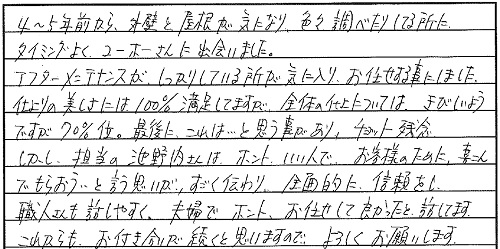 4～5年前から、外壁と屋根が気になり、色々調べたりしてる所に
タイミングよく、ユーホーさんに出会いました。
アフターメンテナンスが、しっかりしている所が気に入り、お任せする事にしました。
仕上りの美しさには100%満足してますが、全体の仕上については、
ですが90%位。最後に、これは…と思う事があり、チョット残念
しかし、担当の池野内さんは、ホント、いい人で、お客様のために、喜こん
でもらおう…と言う思いが、すごく伝わり、全面的に、信頼をし
職人さんも話しやすく、夫婦で、ホント、お任せして良かったと、話してます。
これからも、お付き合いが続くと思いますので、よろしくお願いします